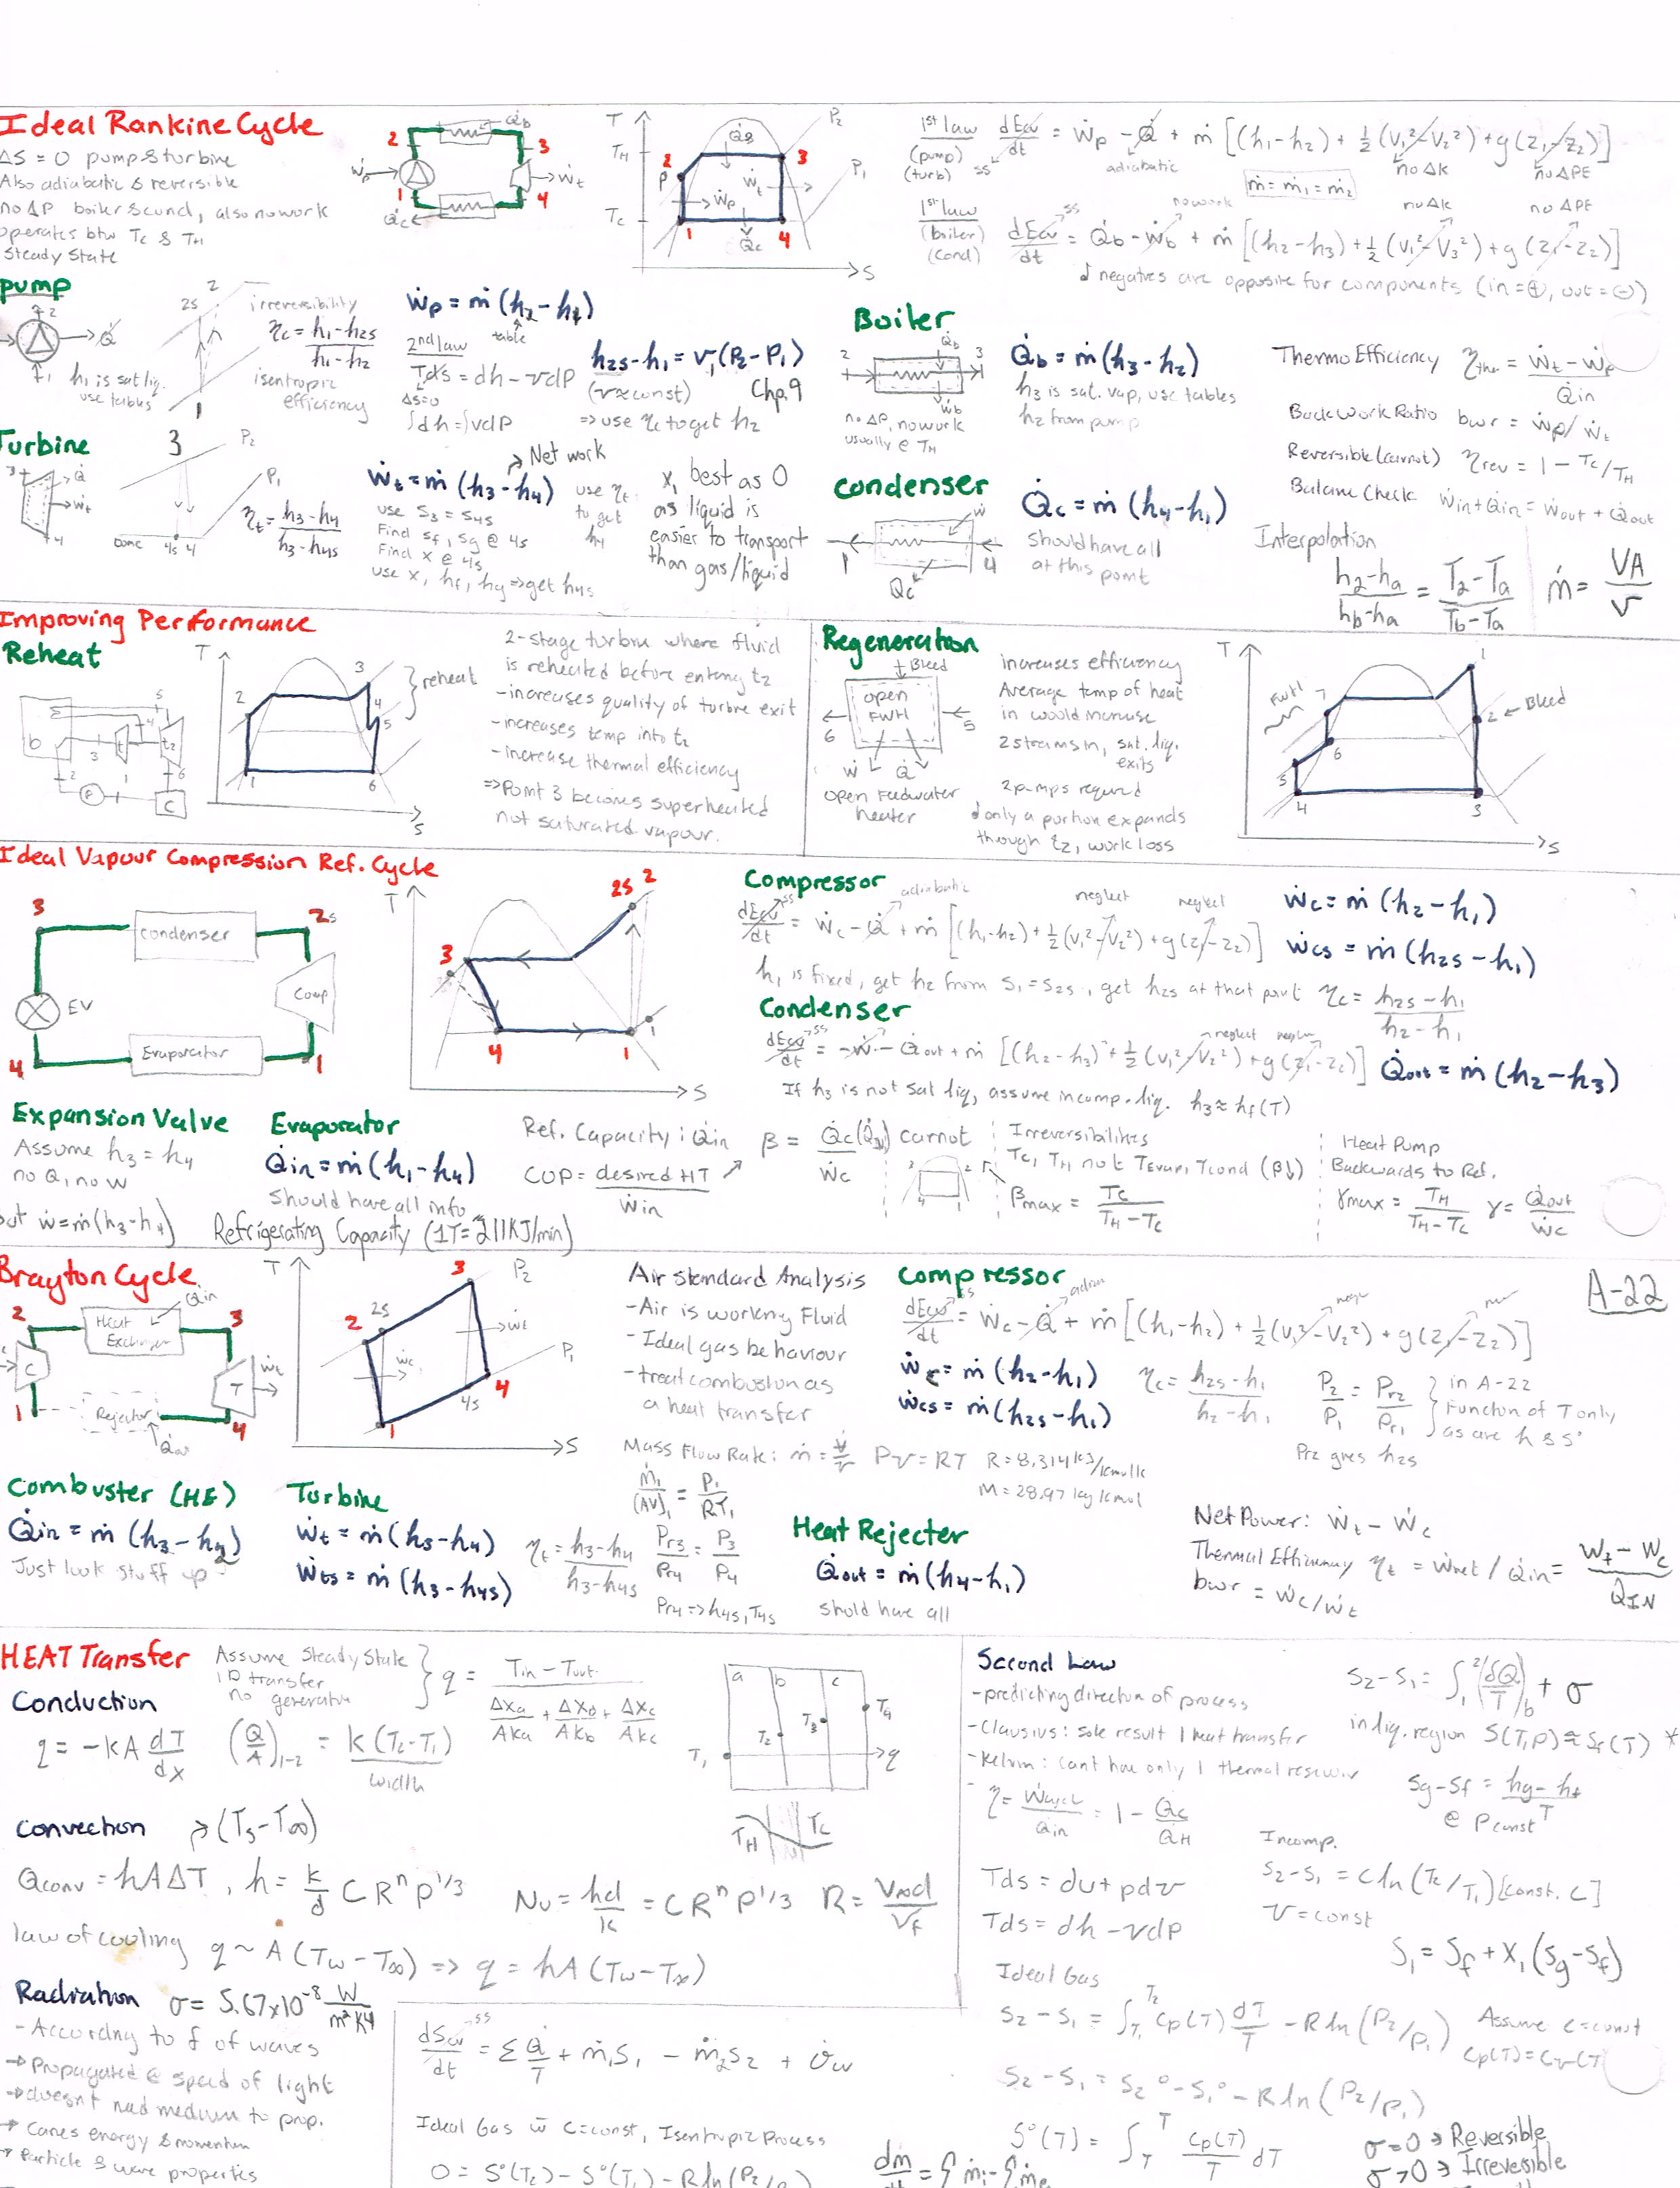 Ideal Rankine Cycle
ΔS = 0 pump & turbine
Also adiabatic & reversible
no ΔP boiler & cond, also no work
operates btw Tc & TH
Steady State
2 Q̇b 3 Ẇp Ẇt 1 Q̇c 4
T TH Tc P2 P1 Q̇B Ẇt Ẇp Q̇c 1 2 3 4 S
1st law (pump) (turb) dEcv/dt = Ẇp - Q̇ + ṁ[(h1-h2) + ½(V1²-V2²) + g(z1-z2)]
ss adiabatic no Δk no ΔPE
ṁ = ṁ1 = ṁ2
1st law (boiler) (cond) dEcv/dt = Q̇b - Ẇb + ṁ[(h2-h3) + ½(V1²-V3²) + g(z1-z2)]
ss no work no Δk no ΔPE
negatives are opposite for components (in=⊕, out=⊖)
Pump
irreversibility
ηc = h1-h2s / h1-h2
isentropic efficiency
h1 is sat liq. use tables
Ẇp = ṁ(h2-h1)
table
2nd law
Tds = dh - vdP
Δs=0
∫dh = ∫vdP
h2s-h1 = v1(P2-P1)
(v≈const) Chp. 9
⇒ use ηc to get h2
Boiler
2 Q̇b 3 Ẇb
no ΔP, no work
usually @ TH
Q̇b = ṁ(h3-h2)
h3 is sat. vap, use tables
h2 from pump
Thermo Efficiency ηthe = Ẇt - Ẇp / Q̇in
Back Work Ratio bwr = Ẇp/Ẇt
Reversible (carnot) ηrev = 1 - Tc/TH
Balance Check Ẇin + Q̇in = Ẇout + Q̇out
Interpolation
h2-ha / hb-ha = T2-Ta / Tb-Ta
ṁ = VA / v
Turbine
3 P2 P1 Q̇ Ẇt 4 Dome 4s 4
ηt = h3-h4 / h3-h4s
Net work
Ẇt = ṁ(h3-h4)
use s3 = s4s
Find sf, sg @ 4s
Find x @ 4s
use x, hf, hg ⇒ get h4s
use ηt to get h4
x1 best as 0
as liquid is
easier to transport
than gas/liquid
Condenser
Ẇ 1 4 Q̇c
Q̇c = ṁ(h4-h1)
Should have all
at this point
Improving Performance
Reheat
T 1 2 3 4 5 6 S reheat
2-stage turbine where fluid
is reheated before entering t2
- increases quality of turbine exit
- increases temp into t2
- increase thermal efficiency
⇒ Point 3 becomes superheated
not saturated vapour.
Regeneration
Bleed
open FWH
6 5 Ẇ Q̇
open Feedwater
heater
increases efficiency
Average temp of heat
in would increase
2 streams in, sat. liq.
exits
2 pumps required
only a portion expands
through t2, work loss
T FWH 1 2 Bleed 3 4 5 6 S
Ideal Vapour Compression Ref. Cycle
3 condenser 2s
EV Comp
4 Evaporator 1
T 2s 2 3 4 1 S
Compressor
dEcv/dt = Ẇc - Q̇ + ṁ[(h1-h2) + ½(V1²-V2²) + g(z1-z2)]
ss adiabatic neglect neglect
Ẇc = ṁ(h2-h1)
Ẇcs = ṁ(h2s-h1)
h1 is fixed, get h2 from s1 = s2s, get h2s at that point ηc = h2s-h1 / h2-h1
Condenser
dEcv/dt = -Ẇ - Q̇out + ṁ[(h2-h3) + ½(V1²-V2²) + g(z1-z2)]
Q̇out = ṁ(h2-h3)
If h3 is not sat liq, assume incomp. liq. h3 ≈ hf(T)
Expansion Valve
Assume h3 = h4
no Q, no W
but ẇ = ṁ(h3-h4)
Evaporator
Q̇in = ṁ(h1-h4)
Should have all info
Refrigerating Capacity (1T = 211 KJ/min)
Ref. Capacity: Q̇in
COP = desired HT / Ẇin
β = Q̇c / Ẇc carnot
Irreversibilities
Tc, TH not Tevap, Tcond (β↓)
βmax = Tc / TH-Tc
Heat Pump
Backwards to Ref.
γmax = TH / TH-Tc γ = Q̇out / Ẇc
Brayton Cycle
2 Heat Exchanger Q̇in 3
C T Ẇt
1 Rejector 4 Q̇out
T 3 P2 2 2s Ẇt Ẇc P1 4 4s 1 S
Air Standard Analysis
- Air is working Fluid
- Ideal gas behaviour
- treat combustion as
a heat transfer
Mass Flow Rate: ṁ = V̇/v Pv = RT R = 8.314 kJ/kmolk
M = 28.97 kg/kmol
ṁ1 / (AV)1 = P1 / RT1
Compressor
A-22
dEcv/dt = Ẇc - Q̇ + ṁ[(h1-h2) + ½(V1²-V2²) + g(z1-z2)]
Ẇc = ṁ(h2-h1)
Ẇcs = ṁ(h2s-h1)
ηc = h2s-h1 / h2-h1
P2/P1 = Pr2/Pr1
in A-22
Function of T only
as are h & s°
Pr2 gives h2s
Combuster (HE)
Q̇in = ṁ(h3-h2)
Just look stuff up
Turbine
Ẇt = ṁ(h3-h4)
Ẇts = ṁ(h3-h4s)
ηt = h3-h4 / h3-h4s
Pr3/Pr4 = P3/P4
Pr4 => h4s, T4s
Heat Rejecter
Q̇out = ṁ(h4-h1)
should have all
Net Power: Ẇt - Ẇc
Thermal Efficiency ηt = Ẇnet / Q̇in = Wt - Wc / QIN
bwr = Ẇc/Ẇt
HEAT Transfer
Assume Steady State
1D transfer
no generation
q = Tin - Tout / Δxa/Aka + Δxb/Akb + Δxc/Akc
Conduction
q = -kA dT/dx (Q/A)1-2 = k(T2-T1) / width
a b c T1 T2 T3 T4 q
TH Tc
Convection → (Ts-T∞)
Qconv = hAΔT, h = k/d C Rⁿ P^1/3 Nu = hd/k = C Rⁿ P^1/3 R = V∞d / Vf
law of cooling q ~ A(Tw-T∞) => q = hA(Tw-T∞)
Radiation σ = 5.67×10⁻⁸ W/m²K4
- According to f of waves
→ Propagated @ speed of light
→ doesnt need medium to prop.
→ Carries energy & momentum
→ Particle & wave properties
dScv/dt = Σ Q̇/T + ṁ1s1 - ṁ2s2 + σ̇cv
ss
Ideal Gas w̄ c=const, Isentropic Process
0 = s°(T2) - s°(T1) - R ln(P2/
Second Law
- predicting direction of process
- Clausius: sole result 1 heat transfer
- Kelvin: cant have only 1 thermal reservoir
- η = Ẇcycle / Q̇in = 1 - Q̇c/Q̇H
s2-s1 = ∫1² (δQ/T)b + σ
in liq. region s(T,p) ≈ sf(T) *
sg-sf = hg-hf / T
@ P const
Tds = du + pdv
Tds = dh - vdp
Incomp.
s2-s1 = c ln(T2/T1) [const. c]
v = const
s1 = sf + x1(sg-sf)
Ideal Gas
s2-s1 = ∫T1^T2 cp(T) dT/T - R ln(P2/P1)
Assume c=const
s2-s1 = s2° - s1° - R ln(P2/P1)
s°(T) = ∫T^T cp(T)/T dT
σ=0 → Reversible
σ>0 → Irreversible
dm
= Σ ṁi - Σ ṁe